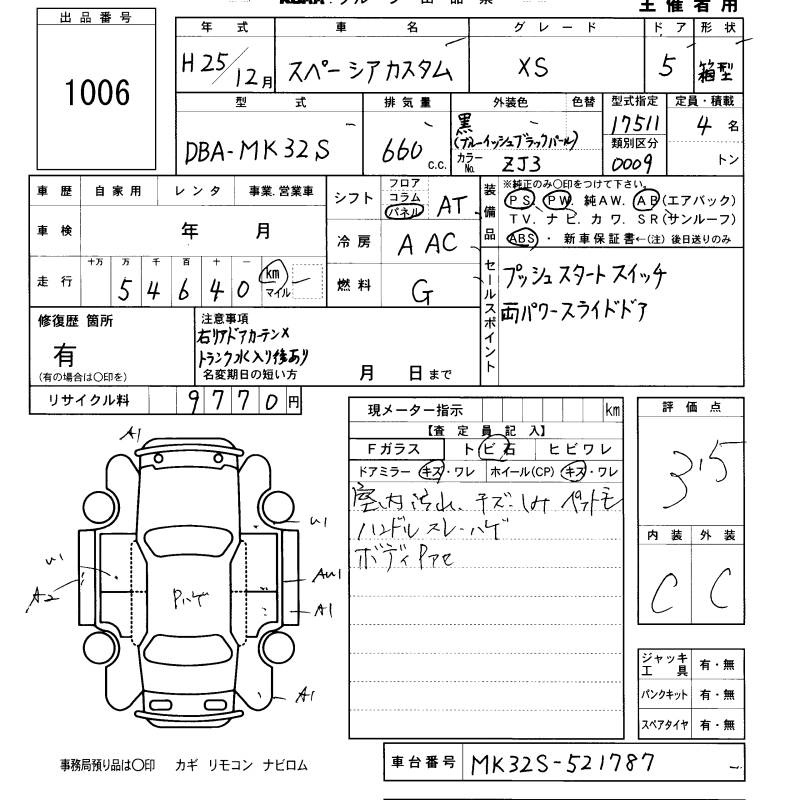 主催者用
出品番号
1006
年式 車名 グレード ドア 形状
H25/12月 スペーシアカスタム XS 5 箱型
型式 排気量 外装色 色替 型式指定 定員・積載
DBA-MK32S 660 c.c. 黒 (ブルーイッシュブラックパール) 17511 4名
カラーNo. ZJ3 類別区分 0009 トン
車歴 自家用 レンタ 事業.営業車
車検 年 月
走行 十万 万 千 百 十 一
54640 km マイル
シフト フロア コラム パネル AT
冷房 A AC
燃料 G
装備品 ※純正のみ〇印をつけて下さい。
PS、PW、純AW、AB(エアバック)
TV、ナビ、カワ、SR(サンルーフ)
ABS・新車保証書←(注)後日送りのみ
セールスポイント
プッシュスタートスイッチ
両パワースライドドア
修復歴 箇所
有
(有の場合は〇印を)
注意事項
右リアドアカーテン×
トランク水入り後あり
名変期日の短い方 月 日まで
リサイクル料 9770円
現メーター指示 km
【査定員記入】
Fガラス ト ビ石 ヒビワレ
ドアミラー キズ・ワレ ホイール(CP) キズ・ワレ
室内汚れ、キズ・しみ ペット毛
ハンドルスレ・ハゲ
ボディ
評価点
3.5
内装 外装
C C
ジャッキ工具 有・無
パンクキット 有・無
スペアタイヤ 有・無
A1
U1
U1
A2
AU1
A1
Pハゲ
A1
事務局預り品は〇印 カギ リモコン ナビロム
車台番号 MK32S-521787